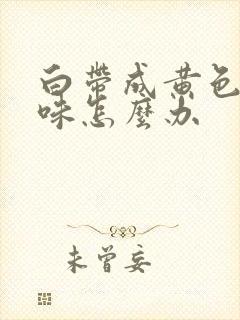 白帶成黃色
味怎麼办
未曾妄